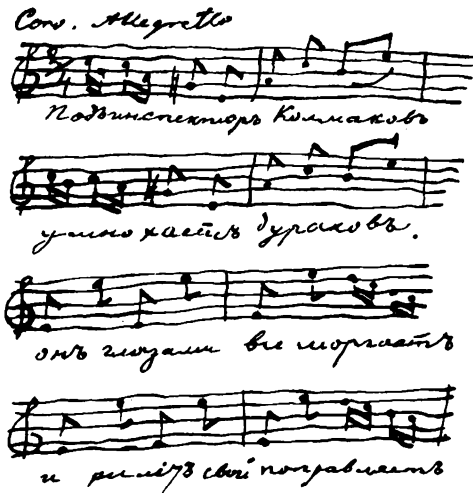 Coro. Allegretto
Подъинспекторъ Колмаковъ
умножаетъ дураковъ.
онъ глазами все моргаетъ
и жилетъ свой поправляетъ